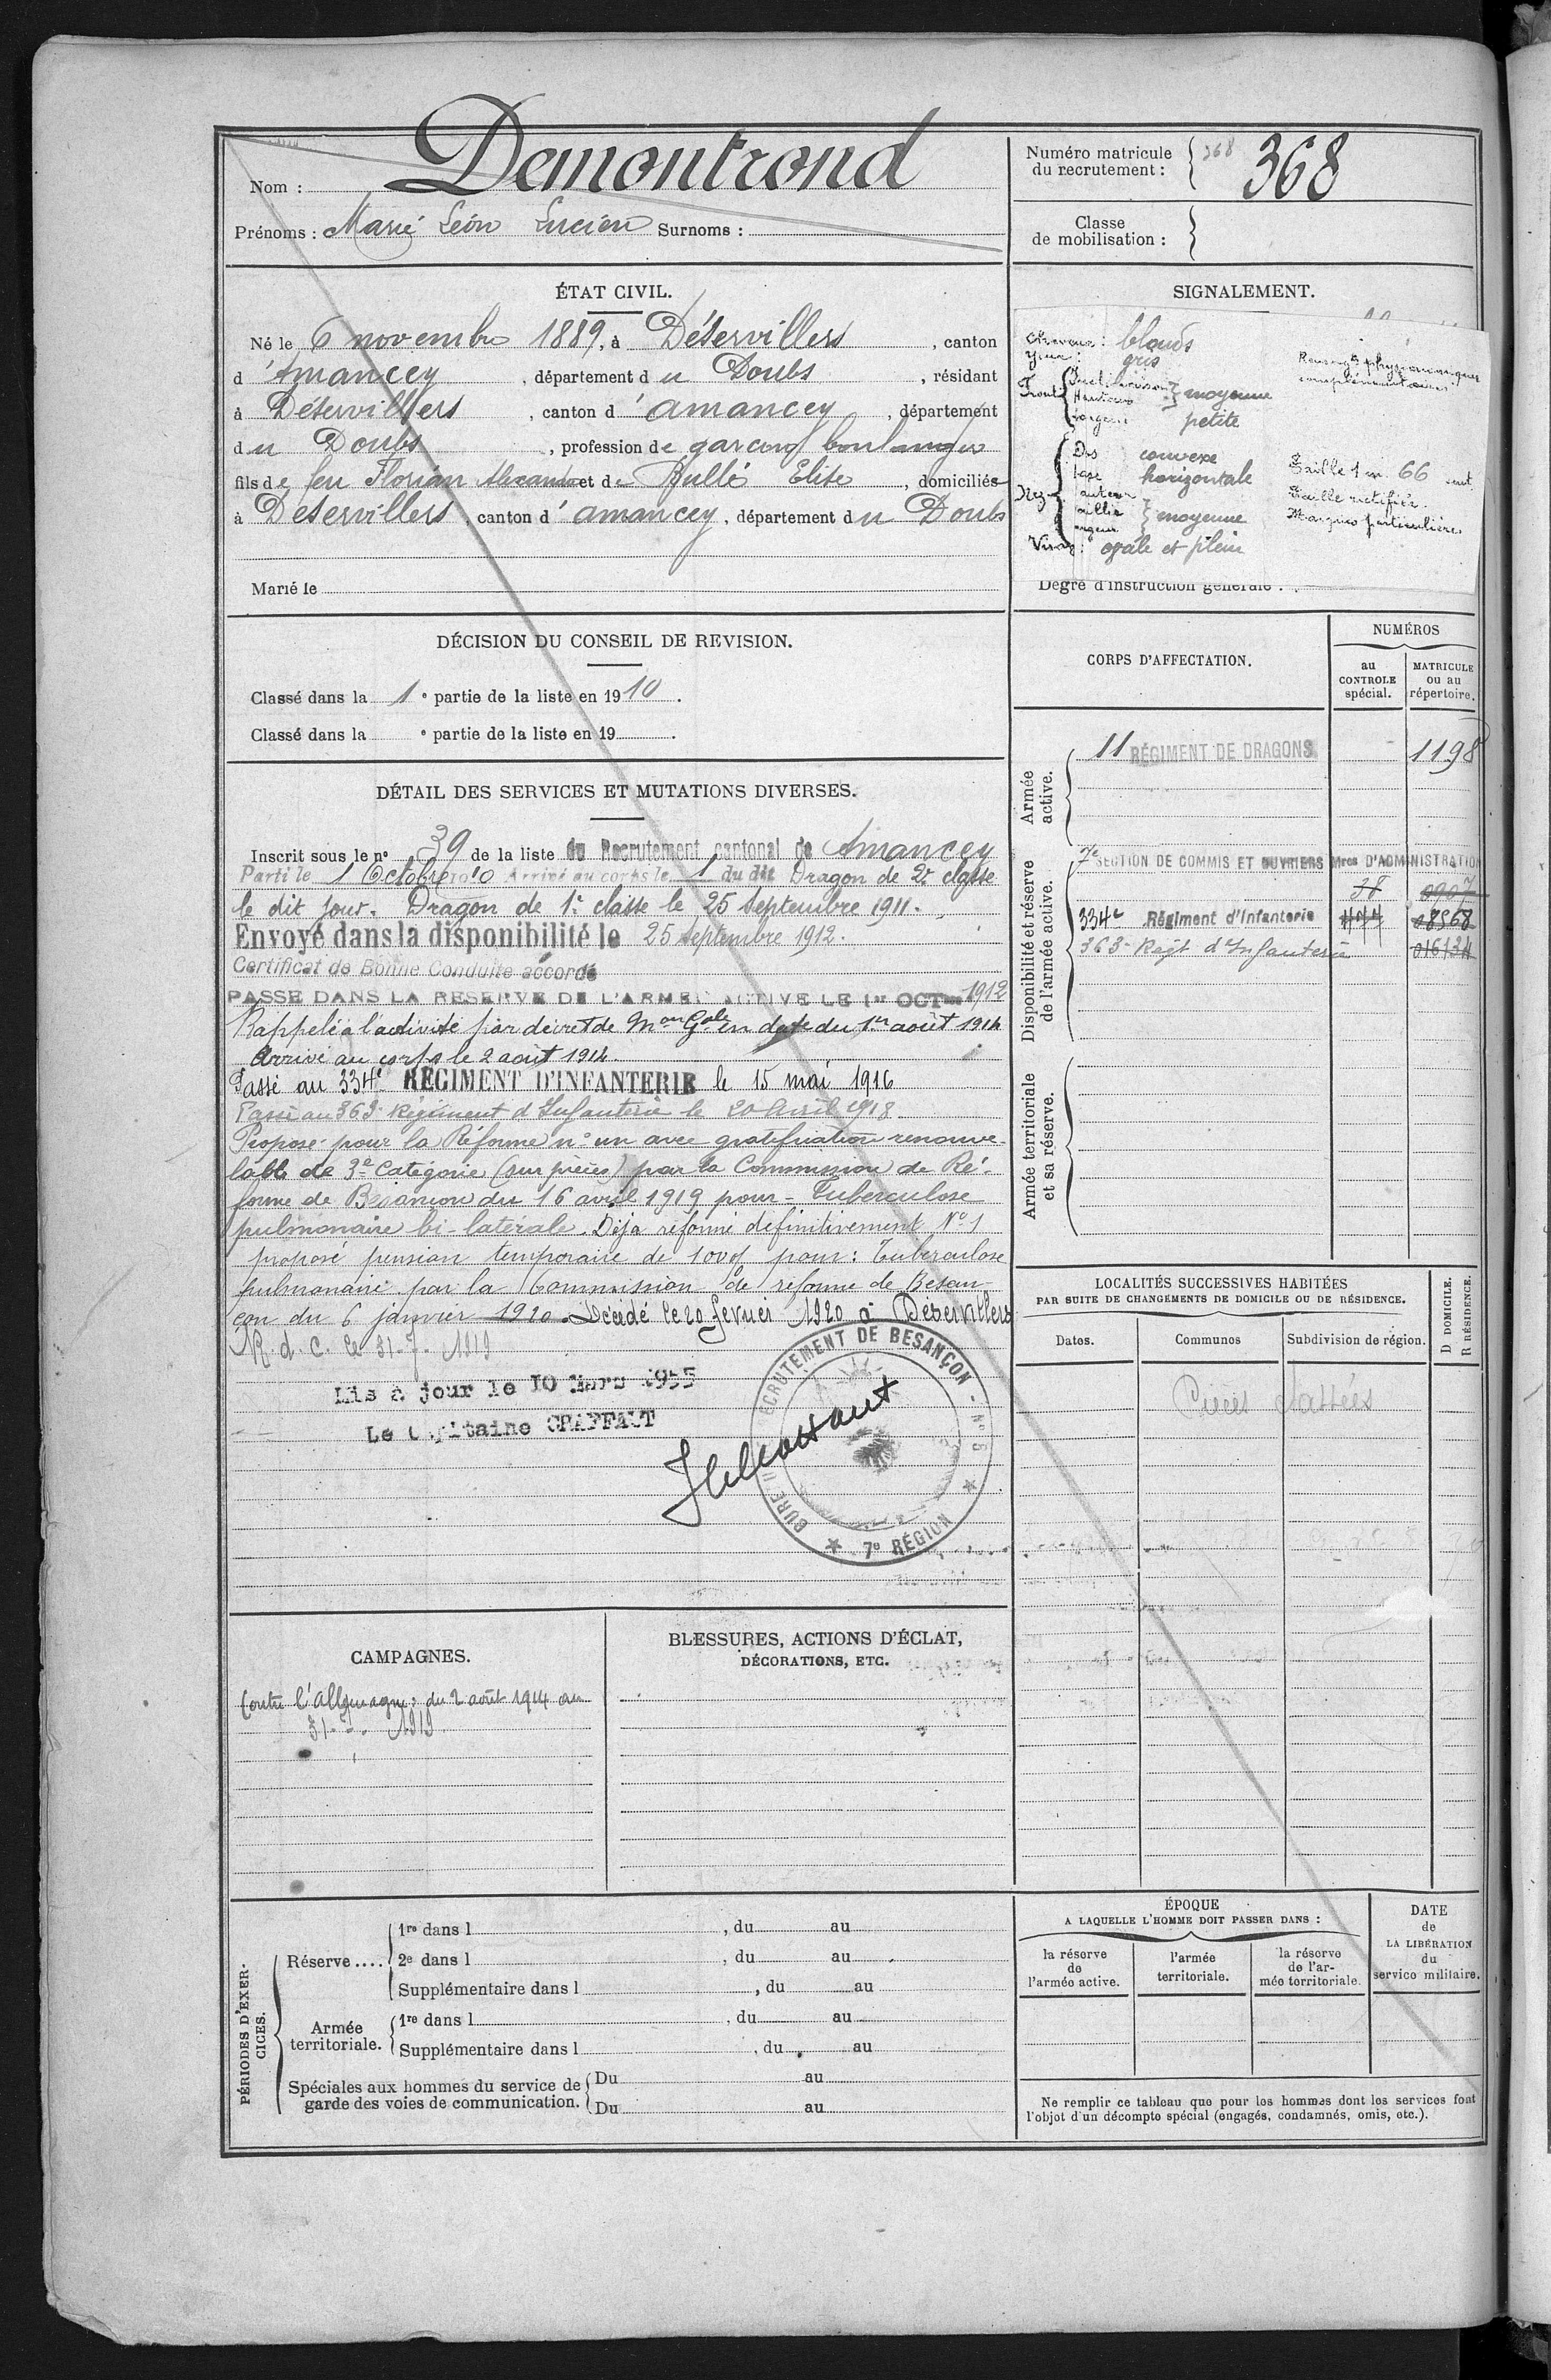 Nom : Demontrond
Prénoms : Marie Léon Lucien Surnoms :
Numéro matricule
du recrutement : 368 368
Classe
de mobilisation :
ÉTAT CIVIL.
Né le 6 novembre 1889, à Déservillers, canton
d'Amancey, département du Doubs, résidant
à Déservillers, canton d'amancey, département
du Doubs, profession de garçon boulanger
fils de feu Florian Alexandre et de Bullé Elise, domiciliés
à Déservillers, canton d'amancey, département du Doubs
Marié le
SIGNALEMENT.
Cheveux : blonds
Yeux : gris
Front Inclinaison
Hauteur moyenne
Largeur petite
Nez Dos convexe
base horizontale
hauteur
saillie moyenne
largeur
Visage : ovale et plein
Renseigts physionomiques
complémentaires
Taille 1 m. 66 cent.
Taille rectifiée
Marques particulières
Degré d'instruction générale :
DÉCISION DU CONSEIL DE REVISION.
Classé dans la 1e partie de la liste en 1910.
Classé dans la e partie de la liste en 19 .
DÉTAIL DES SERVICES ET MUTATIONS DIVERSES.
Inscrit sous le n° 39 de la liste du Recrutement cantonal de Amancey
Parti le 1 Octobre 1910 Arrivé au corps le 1 du dit Dragon de 2e classe
le dit jour. Dragon de 1e classe le 25 Septembre 1911.
Envoyé dans la disponibilité le 25 septembre 1912.
Certificat de Bonne Conduite accordé
PASSÉ DANS LA RESERVE DE L'ARMÉE ACTIVE LE 1er OCT 1912
Rappelé à l'activité par décret de Mon Gale en date du 1er août 1914
Arrivé au corps le 2 août 1914.
Passé au 334e RÉGIMENT D'INFANTERIE le 15 mai 1916
Passé au 363e Régiment d'Infanterie le 20 Avril 1918.
Proposé pour la Réforme n° un avec gratification renouve-
lable de 3e Catégorie (sur pièces) par la Commission de Ré-
forme de Besançon du 16 avril 1919 pour - Tuberculose
pulmonaire bi-latérale. Déjà réformé définitivement N° 1
proposé pension temporaire de 100% pour : Tuberculose
pulmonaire par la Commission de réforme de Besan-
çon du 6 janvier 1920. Décédé le 20 février 1920 à Déservillers
R. d. C. le 31-7-1919
Mis à jour le 10 Mars 1935
Le Capitaine
BUREAU DE RECRUTEMENT DE BESANÇON - N° 6
7e RÉGION
CORPS D'AFFECTATION.
NUMÉROS
au
CONTROLE
spécial.
MATRICULE
ou au
répertoire.
Armée
active.
11 RÉGIMENT DE DRAGONS 1198
Disponibilité et réserve
de l'armée active.
7e SECTION DE COMMIS ET OUVRIERS Mres D'ADMINISTRATION
38 0907
334e Régiment d'Infanterie 08568
363e Regt d'Infanterie 016134
Armée territoriale
et sa réserve.
LOCALITÉS SUCCESSIVES HABITÉES
PAR SUITE DE CHANGEMENTS DE DOMICILE OU DE RÉSIDENCE.
Dates.
Communes
Subdivision de région.
D DOMICILE.
R RÉSIDENCE.
Pièces classées
CAMPAGNES.
Contre l'Allemagne : du 2 août 1914 au
31-7-1919
BLESSURES, ACTIONS D'ÉCLAT,
DÉCORATIONS, ETC.
PÉRIODES D'EXER-
CICES.
Réserve ....
1re dans l , du au
2e dans l , du au
Supplémentaire dans l , du au
Armée
territoriale.
1re dans l , du au
Supplémentaire dans l , du au
Spéciales aux hommes du service de
garde des voies de communication.
Du au
Du au
ÉPOQUE
A LAQUELLE L'HOMME DOIT PASSER DANS :
la réserve
de
l'armée active.
l'armée
territoriale.
la réserve
de l'ar-
mée territoriale.
DATE
de
LA LIBÉRATION
du
service militaire.
Ne remplir ce tableau que pour les hommes dont les services font
l'objet d'un décompte spécial (engagés, condamnés, omis, etc.).